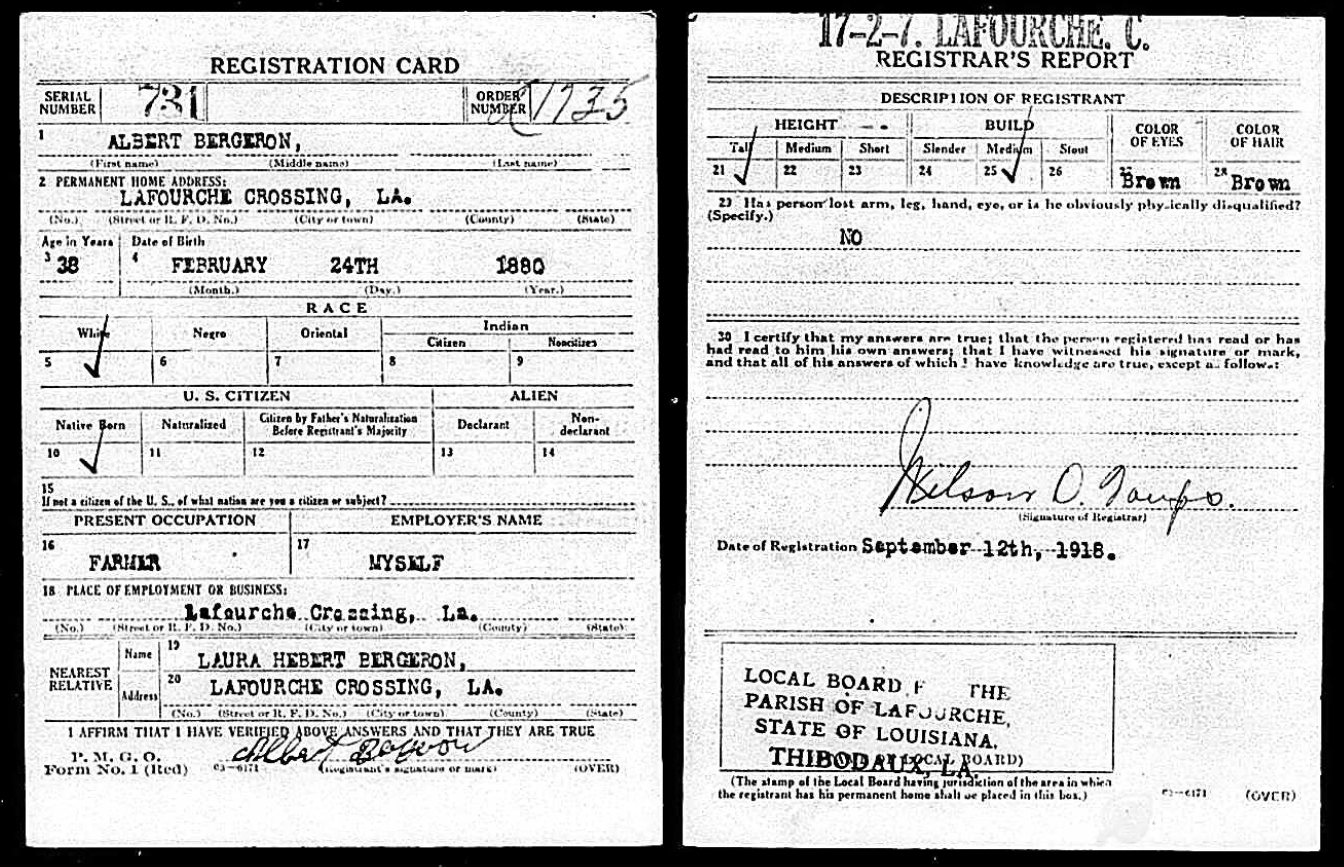 REGISTRATION CARD
SERIAL NUMBER 731 ORDER NUMBER 1735
1 ALBERT BERGERON,
(First name) (Middle name) (Last name)
2 PERMANENT HOME ADDRESS:
LAFOURCHE CROSSING, LA.
(No.) (Street or R. F. D. No.) (City or town) (County) (State)
Age in Years Date of Birth
3 38 4 FEBRUARY 24TH 1880
(Month.) (Day.) (Year.)
RACE
White Negro Oriental Indian
Citizen Noncitizen
5 ✓ 6 7 8 9
U. S. CITIZEN ALIEN
Native Born Naturalized Citizen by Father's Naturalization Before Registrant's Majority Declarant Non-declarant
10 ✓ 11 12 13 14
15
If not a citizen of the U. S., of what nation are you a citizen or subject?
PRESENT OCCUPATION EMPLOYER'S NAME
16 FARMER 17 MYSELF
18 PLACE OF EMPLOYMENT OR BUSINESS:
Lafourche Crossing, La.
(No.) (Street or R. F. D. No.) (City or town) (County) (State)
NEAREST RELATIVE Name 19 LAURA HEBERT BERGERON,
Address 20 LAFOURCHE CROSSING, LA.
(No.) (Street or R. F. D. No.) (City or town) (County) (State)
I AFFIRM THAT I HAVE VERIFIED ABOVE ANSWERS AND THAT THEY ARE TRUE
P. M. G. O.
Form No. 1 (Red) 03—6171 Albert (Registrant's signature or mark) (OVER)
17-2-7. LAFOURCHE. C.
REGISTRAR'S REPORT
DESCRIPTION OF REGISTRANT
HEIGHT BUILD COLOR OF EYES COLOR OF HAIR
Tall Medium Short Slender Medium Stout
21 ✓ 22 23 24 25 ✓ 26 27 Brown 28 Brown
29 Has person lost arm, leg, hand, eye, or is he obviously physically disqualified?
(Specify.)
NO
30 I certify that my answers are true; that the person registered has read or has
had read to him his own answers; that I have witnessed his signature or mark,
and that all of his answers of which I have knowledge are true, except as follows:
Wilson D.
(Signature of Registrar)
Date of Registration September 12th, 1918.
LOCAL BOARD F THE
PARISH OF LAFOURCHE,
STATE OF LOUISIANA,
THIBODAUX, LA.
(STAMP OF LOCAL BOARD)
(The stamp of the Local Board having jurisdiction of the area in which
the registrant has his permanent home shall be placed in this box.)
03—6171 (OVER)